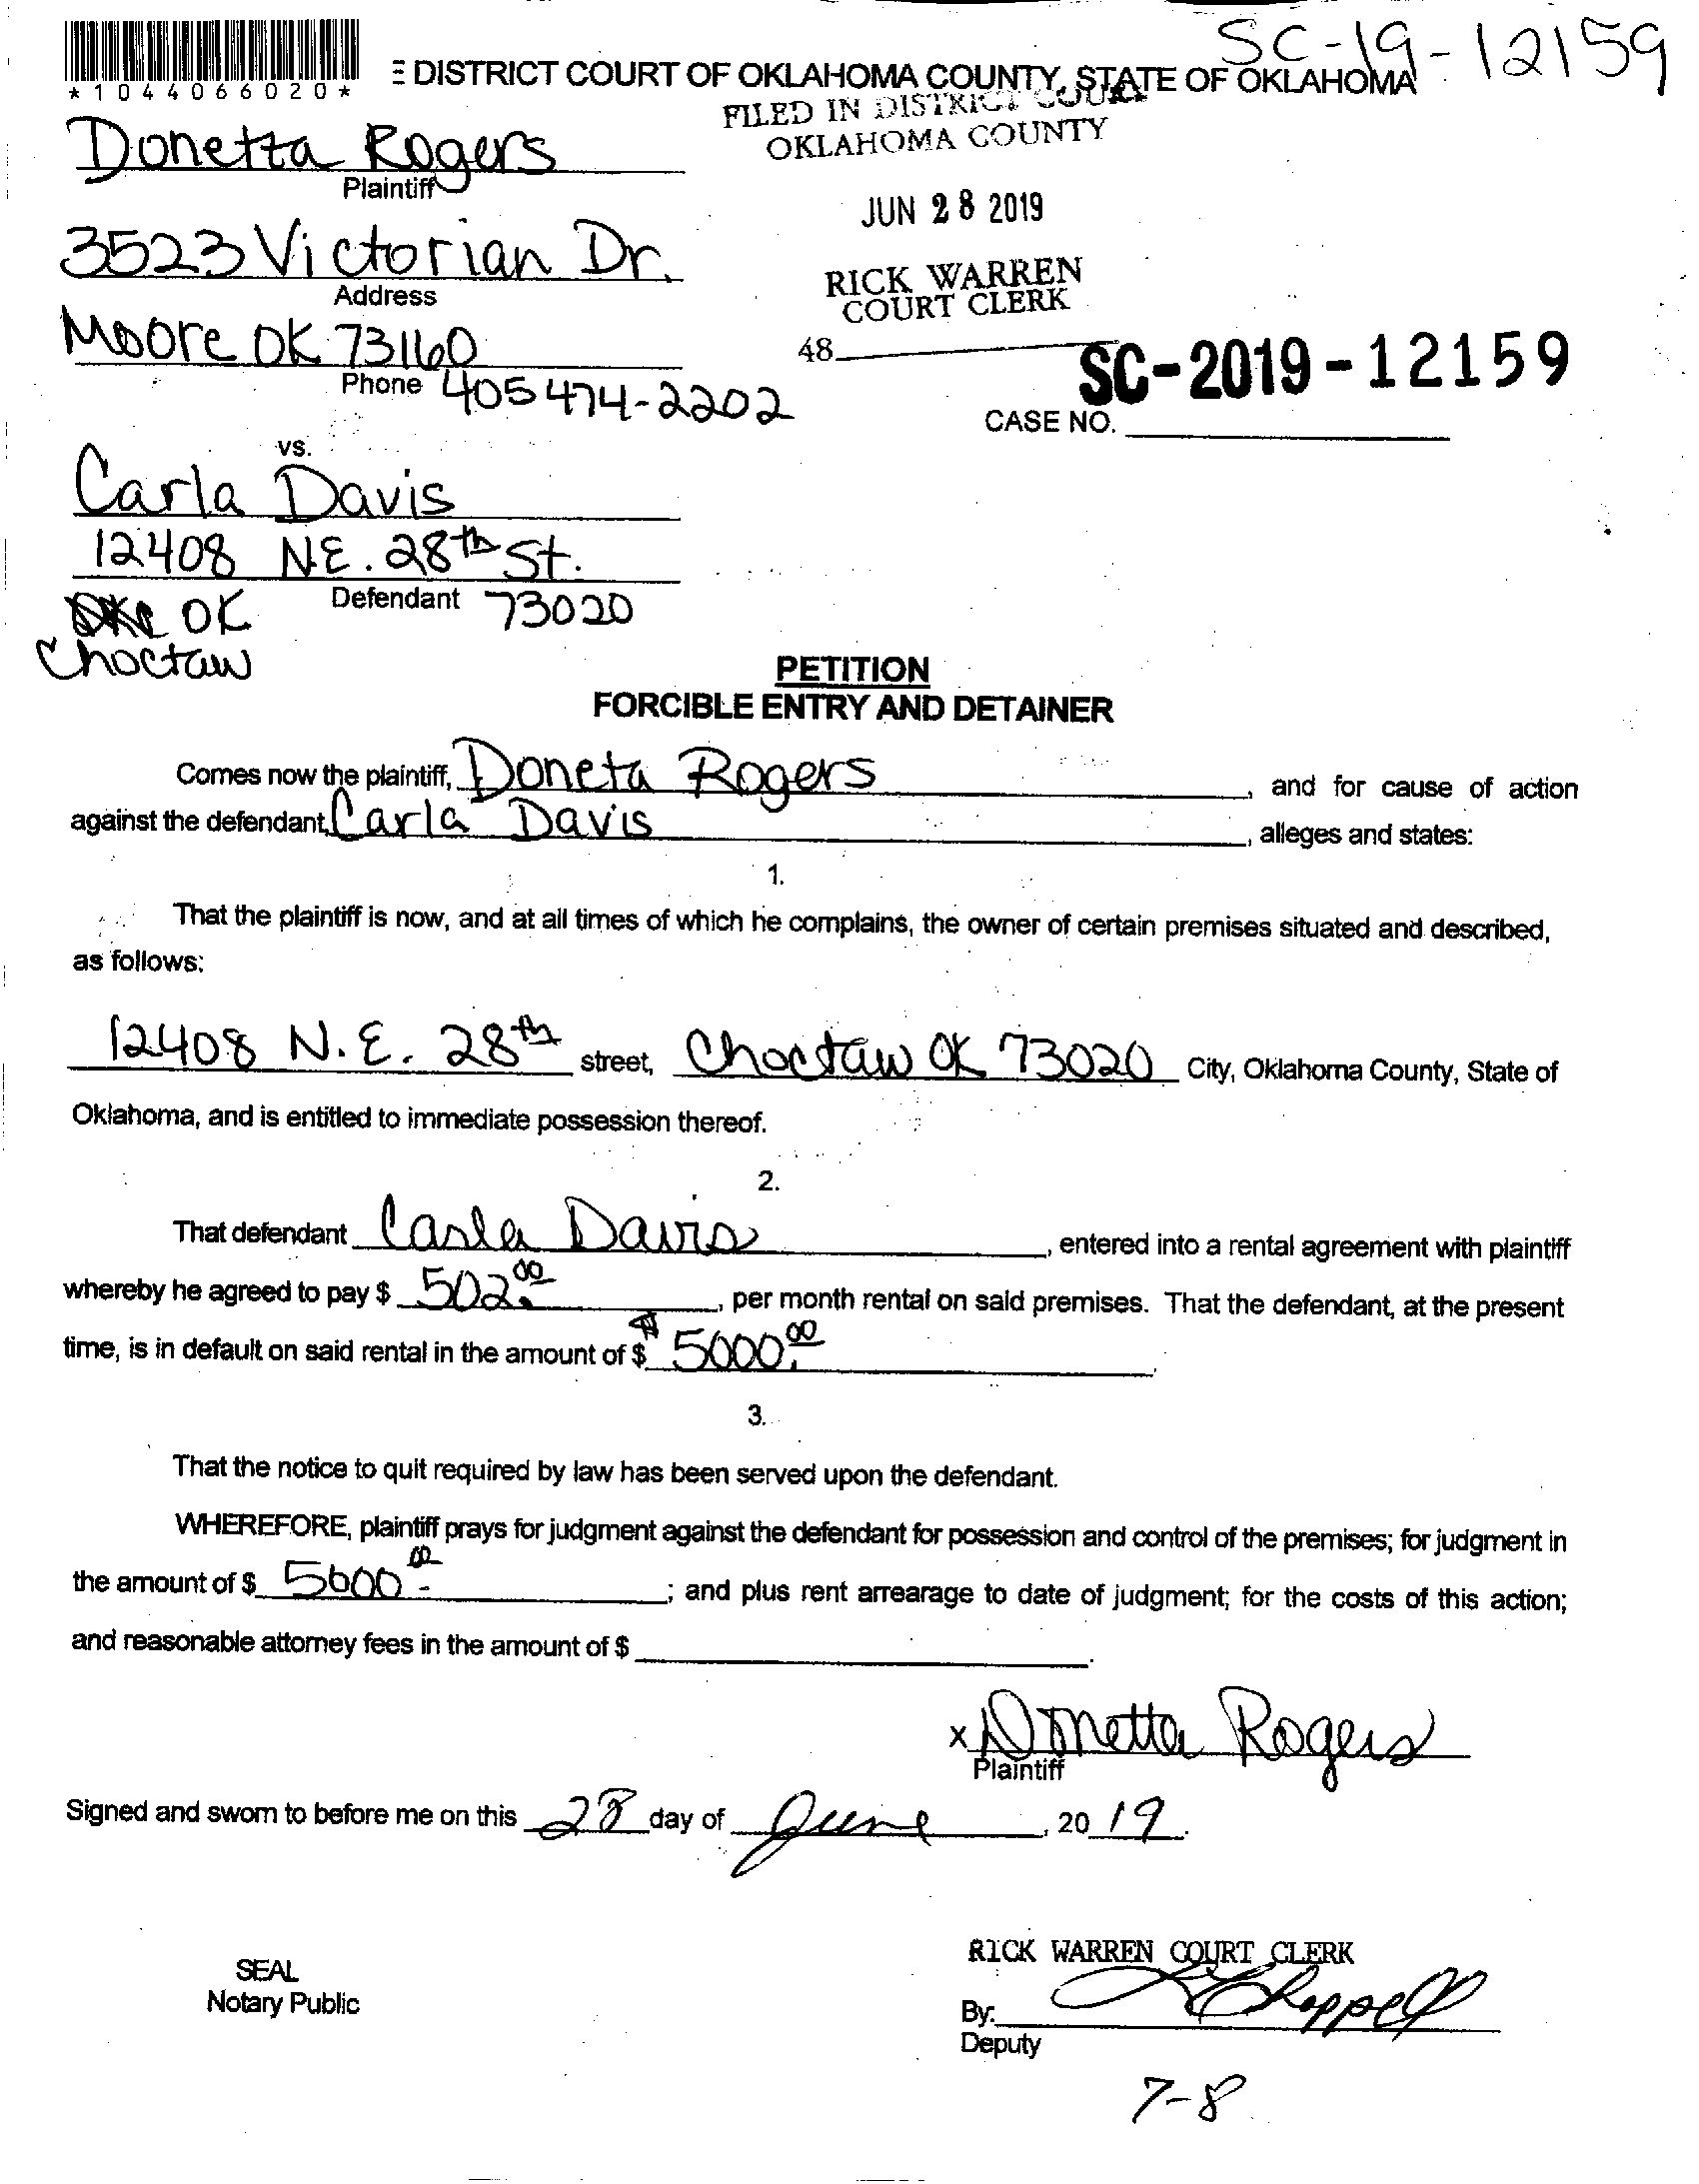 SC-19-12159
*1044066020*
E DISTRICT COURT OF OKLAHOMA COUNTY, STATE OF OKLAHOMA
FILED IN DISTRICT COURT
OKLAHOMA COUNTY
Donetta Rogers
Plaintiff
JUN 28 2019
3523 Victorian Dr.
Address
RICK WARREN
COURT CLERK
Moore OK 73160
48
SC-2019-12159
Phone 405 474-2202
CASE NO.
vs.
Carla Davis
12408 NE. 28th St.
Defendant 73020
OK
Choctaw
PETITION
FORCIBLE ENTRY AND DETAINER
Comes now the plaintiff, Doneta Rogers, and for cause of action
against the defendant, Carla Davis, alleges and states:
1.
That the plaintiff is now, and at all times of which he complains, the owner of certain premises situated and described,
as follows:
12408 N.E. 28th street, Choctaw OK 73020 City, Oklahoma County, State of
Oklahoma, and is entitled to immediate possession thereof.
2.
That defendant Carla Davis, entered into a rental agreement with plaintiff
whereby he agreed to pay $ 502.00, per month rental on said premises. That the defendant, at the present
time, is in default on said rental in the amount of $ 5000.00.
3.
That the notice to quit required by law has been served upon the defendant.
WHEREFORE, plaintiff prays for judgment against the defendant for possession and control of the premises; for judgment in
the amount of $ 5000.00; and plus rent arrearage to date of judgment; for the costs of this action;
and reasonable attorney fees in the amount of $ .
x Donetta Rogers
Plaintiff
Signed and sworn to before me on this 28 day of June, 2019.
RICK WARREN COURT CLERK
SEAL
Notary Public
By: Chappell
Deputy
7-8